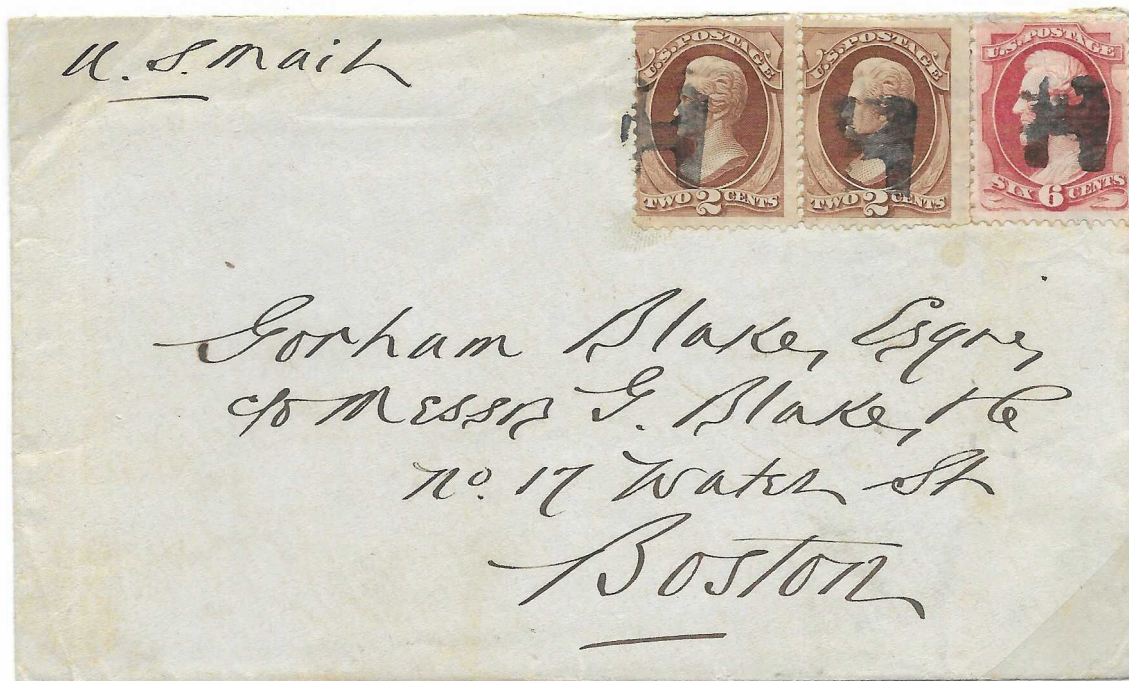 U. S. Mail
U.S. POSTAGE
TWO 2 CENTS
U.S. POSTAGE
TWO 2 CENTS
U.S. POSTAGE
SIX 6 CENTS
Gorham Blake, Esqre,
c/o Messrs G. Blake, &Co
No. 17 Water St
Boston